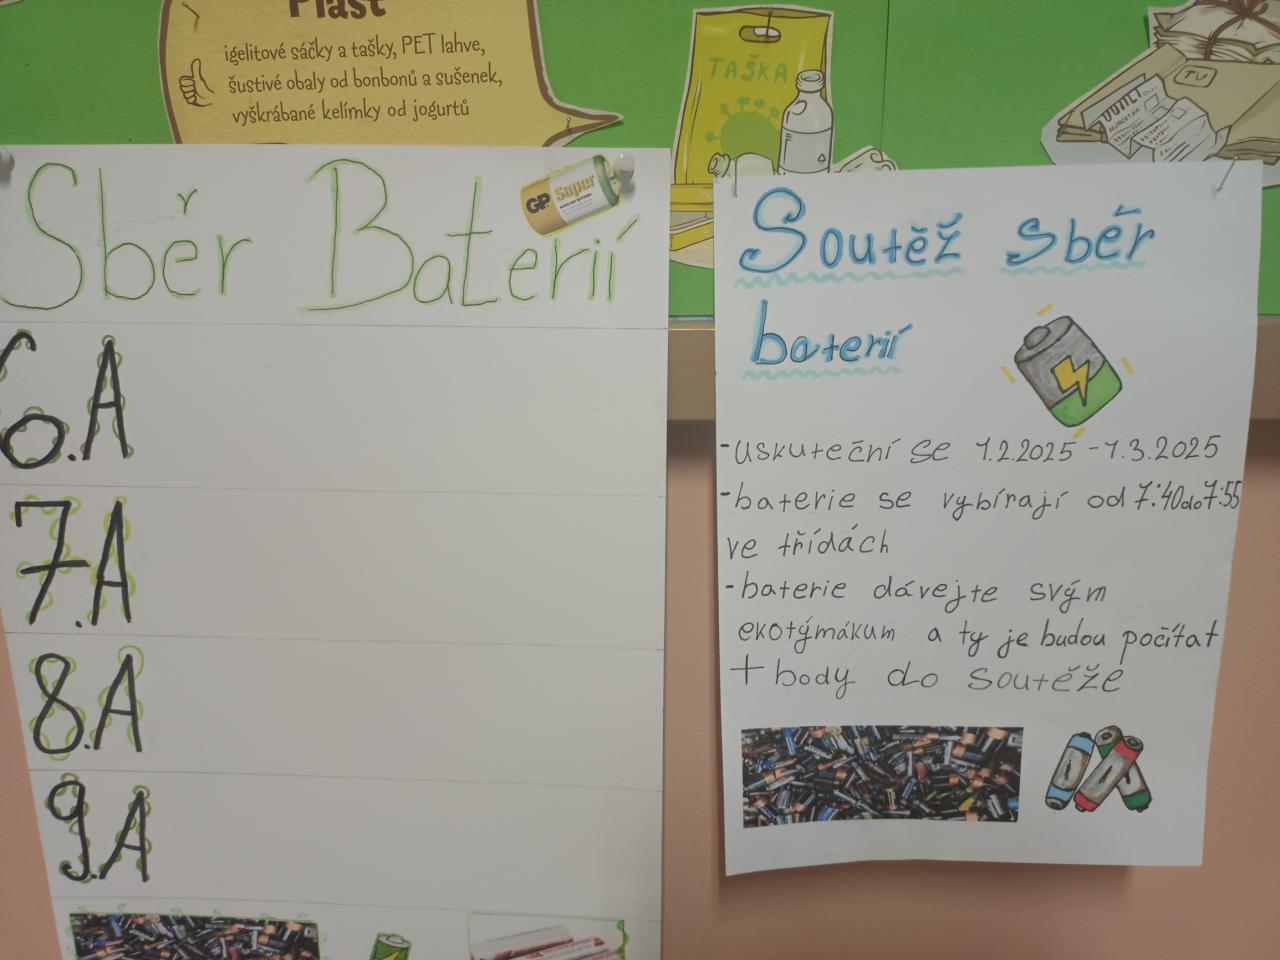 Plast
igelitové sáčky a tašky, PET lahve,
šustivé obaly od bonbonů a sušenek,
vyškrábané kelímky od jogurtů
TAŠKA
Sběr Baterií
GP Super
6.A
7.A
8.A
9.A
Soutěž sběr
baterií
-uskuteční se 1.2.2025 -1.3.2025
-baterie se vybírají od 7:40do7:55
ve třídách
-baterie dávejte svým
ekotýmákum a ty je budou počítat
+ body do soutěže